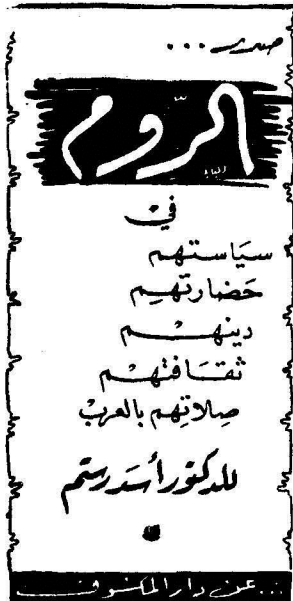 صدر ...
الرّوم
في
سيَاستهم
حَضارتهِم
دينهم
ثقافتهم
صِلاتِهم بالعربْ
للدكتور أسَد رستم
... عن دار المكشوف